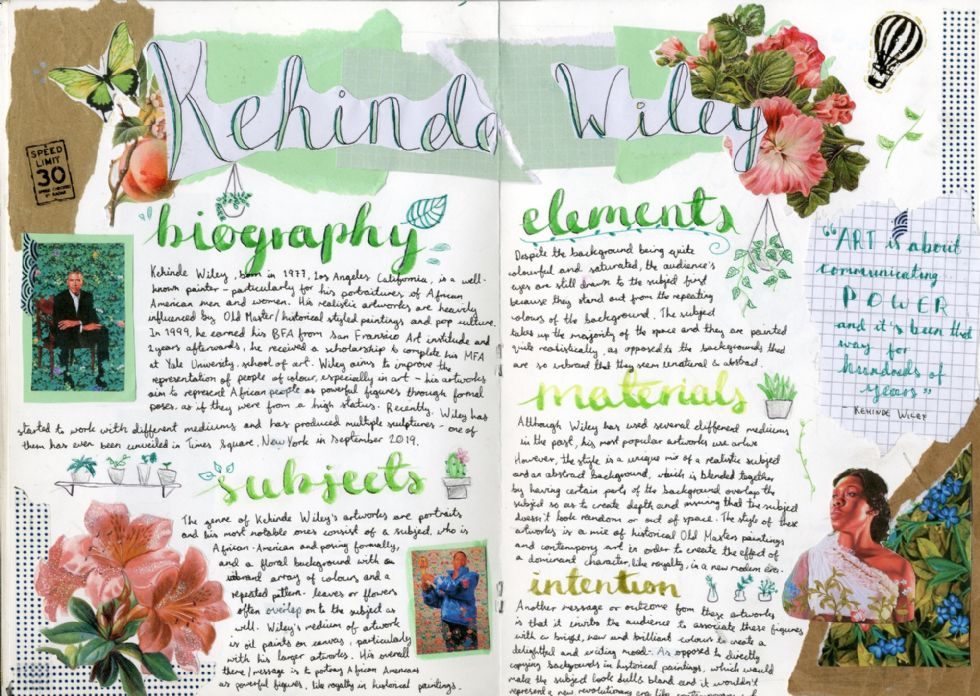 Kehinde Wiley
SPEED
LIMIT
30
biography
Kehinde Wiley, born in 1977, Los Angeles California, is a well-
known painter - particularly for his portraitures of African
American men and women. His realistic artworks are heavily
influenced by Old Master/historical styled paintings and pop culture.
In 1999, he earned his BFA from San Fransico Art institude and
2 years afterwards, he received a scholarship to complete his MFA
at Yale University, school of art. Wiley aims to improve the
representation of people of colour, especially in art - his artworks
aim to represent African people as powerful figures through formal
poses, as if they were from a high status. Recently, Wiley has
started to work with different mediums and has produced multiple sculptures - one of
them has even been unveiled in Times Square, New York in September 2019.
subjects
The genre of Kehinde Wiley's artworks are portraits
and his most notable ones consist of a subject, who is
African-American and posing formally,
and a floral background with an
vibrant array of colours and a
repeated pattern. leaves or flowers
often overlap on to the subject as
well. Wiley's medium of artwork
is oil paints on canvas, particularly
with his larger artworks. His overall
theme/message is to portray African Americans
as powerful figures, like royalty in historical paintings.
elements
Despite the background being quite
colourful and saturated, the audience's
eyes are still drawn to the subject first
because they stand out from the repeating
colours of the background. The subject
takes up the majority of the space and they are painted
quite realistically, as opposed to the backgrounds that
are so vibrant that they seem unnatural & abstract.
materials
Although Wiley has used several different mediums
in the past, his most popular artworks use
However, the style is a unique mix of a realistic subject
and an abstract background, which is blended together
by having certain parts of the background overlap the
subject so as to create depth and insuring that the subject
doesn't look random or out of space. The style of these
artworks is a mix of historical Old Masters paintings
and contempory art in order to create the effect of
a dominant character, like royalty, in a new modern era.
intention
Another message or outcome from these artworks
is that it invites the audience to associate these figures
with a bright, new and brilliant colours to create a
delightful and exciting mood. As opposed to directly
copying backgrounds in historical paintings, which would
make the subject look dull & bland and it wouldn't
represent a new revolutionary era like contemporary
"ART is about
communicating
POWER
and it's been that
way for
hundreds of
years"
KEHINDE WILEY